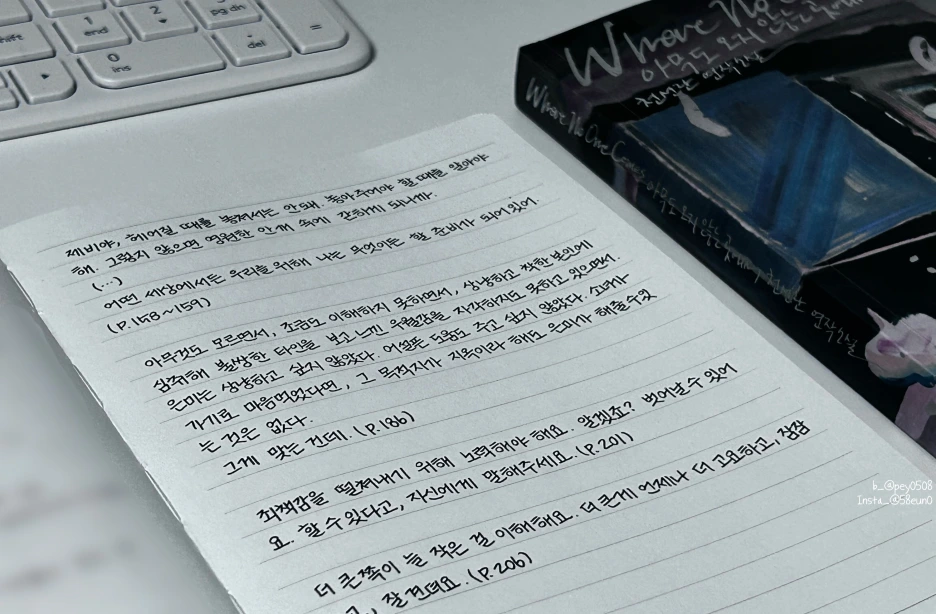 shift
1
end
2
pg dn
0
ins
.
del
=
Where No
아무도 오지 않는 곳에서
천선란 연작소설
Where No One Comes 아무도 오지 않는 곳에서 천선란 연작소설
제비야, 헤어질 때를 놓쳐서는 안돼. 놓아주어야 할 때를 알아야
해. 그렇지 않으면 영원한 안개 속에 갇히게 되니까.
(…)
어떤 세상에서는 우리를 위해 나는 무엇이든 할 준비가 되어있어.
(P.158~159)
아무것도 모르면서, 조금도 이해하지 못하면서, 상냥하고 착한 본인에
심취해 불쌍한 타인을 보고 느낀 우월감을 자각하지도 못하고 있으면서.
은미는 상냥하고 싶지 않았다. 어설픈 도움도 주고 싶지 않았다. 소녀가
가기로 마음먹었다면, 그 목적지가 지옥이라 해도 은미가 해줄 수 있
는 것은 없다.
그게 맞는 건데. (P.186)
죄책감을 떨쳐내기 위해 노력해야 해요. 알겠죠? 벗어날 수 있어
요. 할 수 있다고, 자신에게 말해주세요. (P.201)
더 큰 쪽이 늘 작은 걸 이해해요. 더 큰 게 언제나 더 고요하고, 잠잠
고, 잘 견뎌요. (P.206)
b_@pey0508
Insta_@58eun0